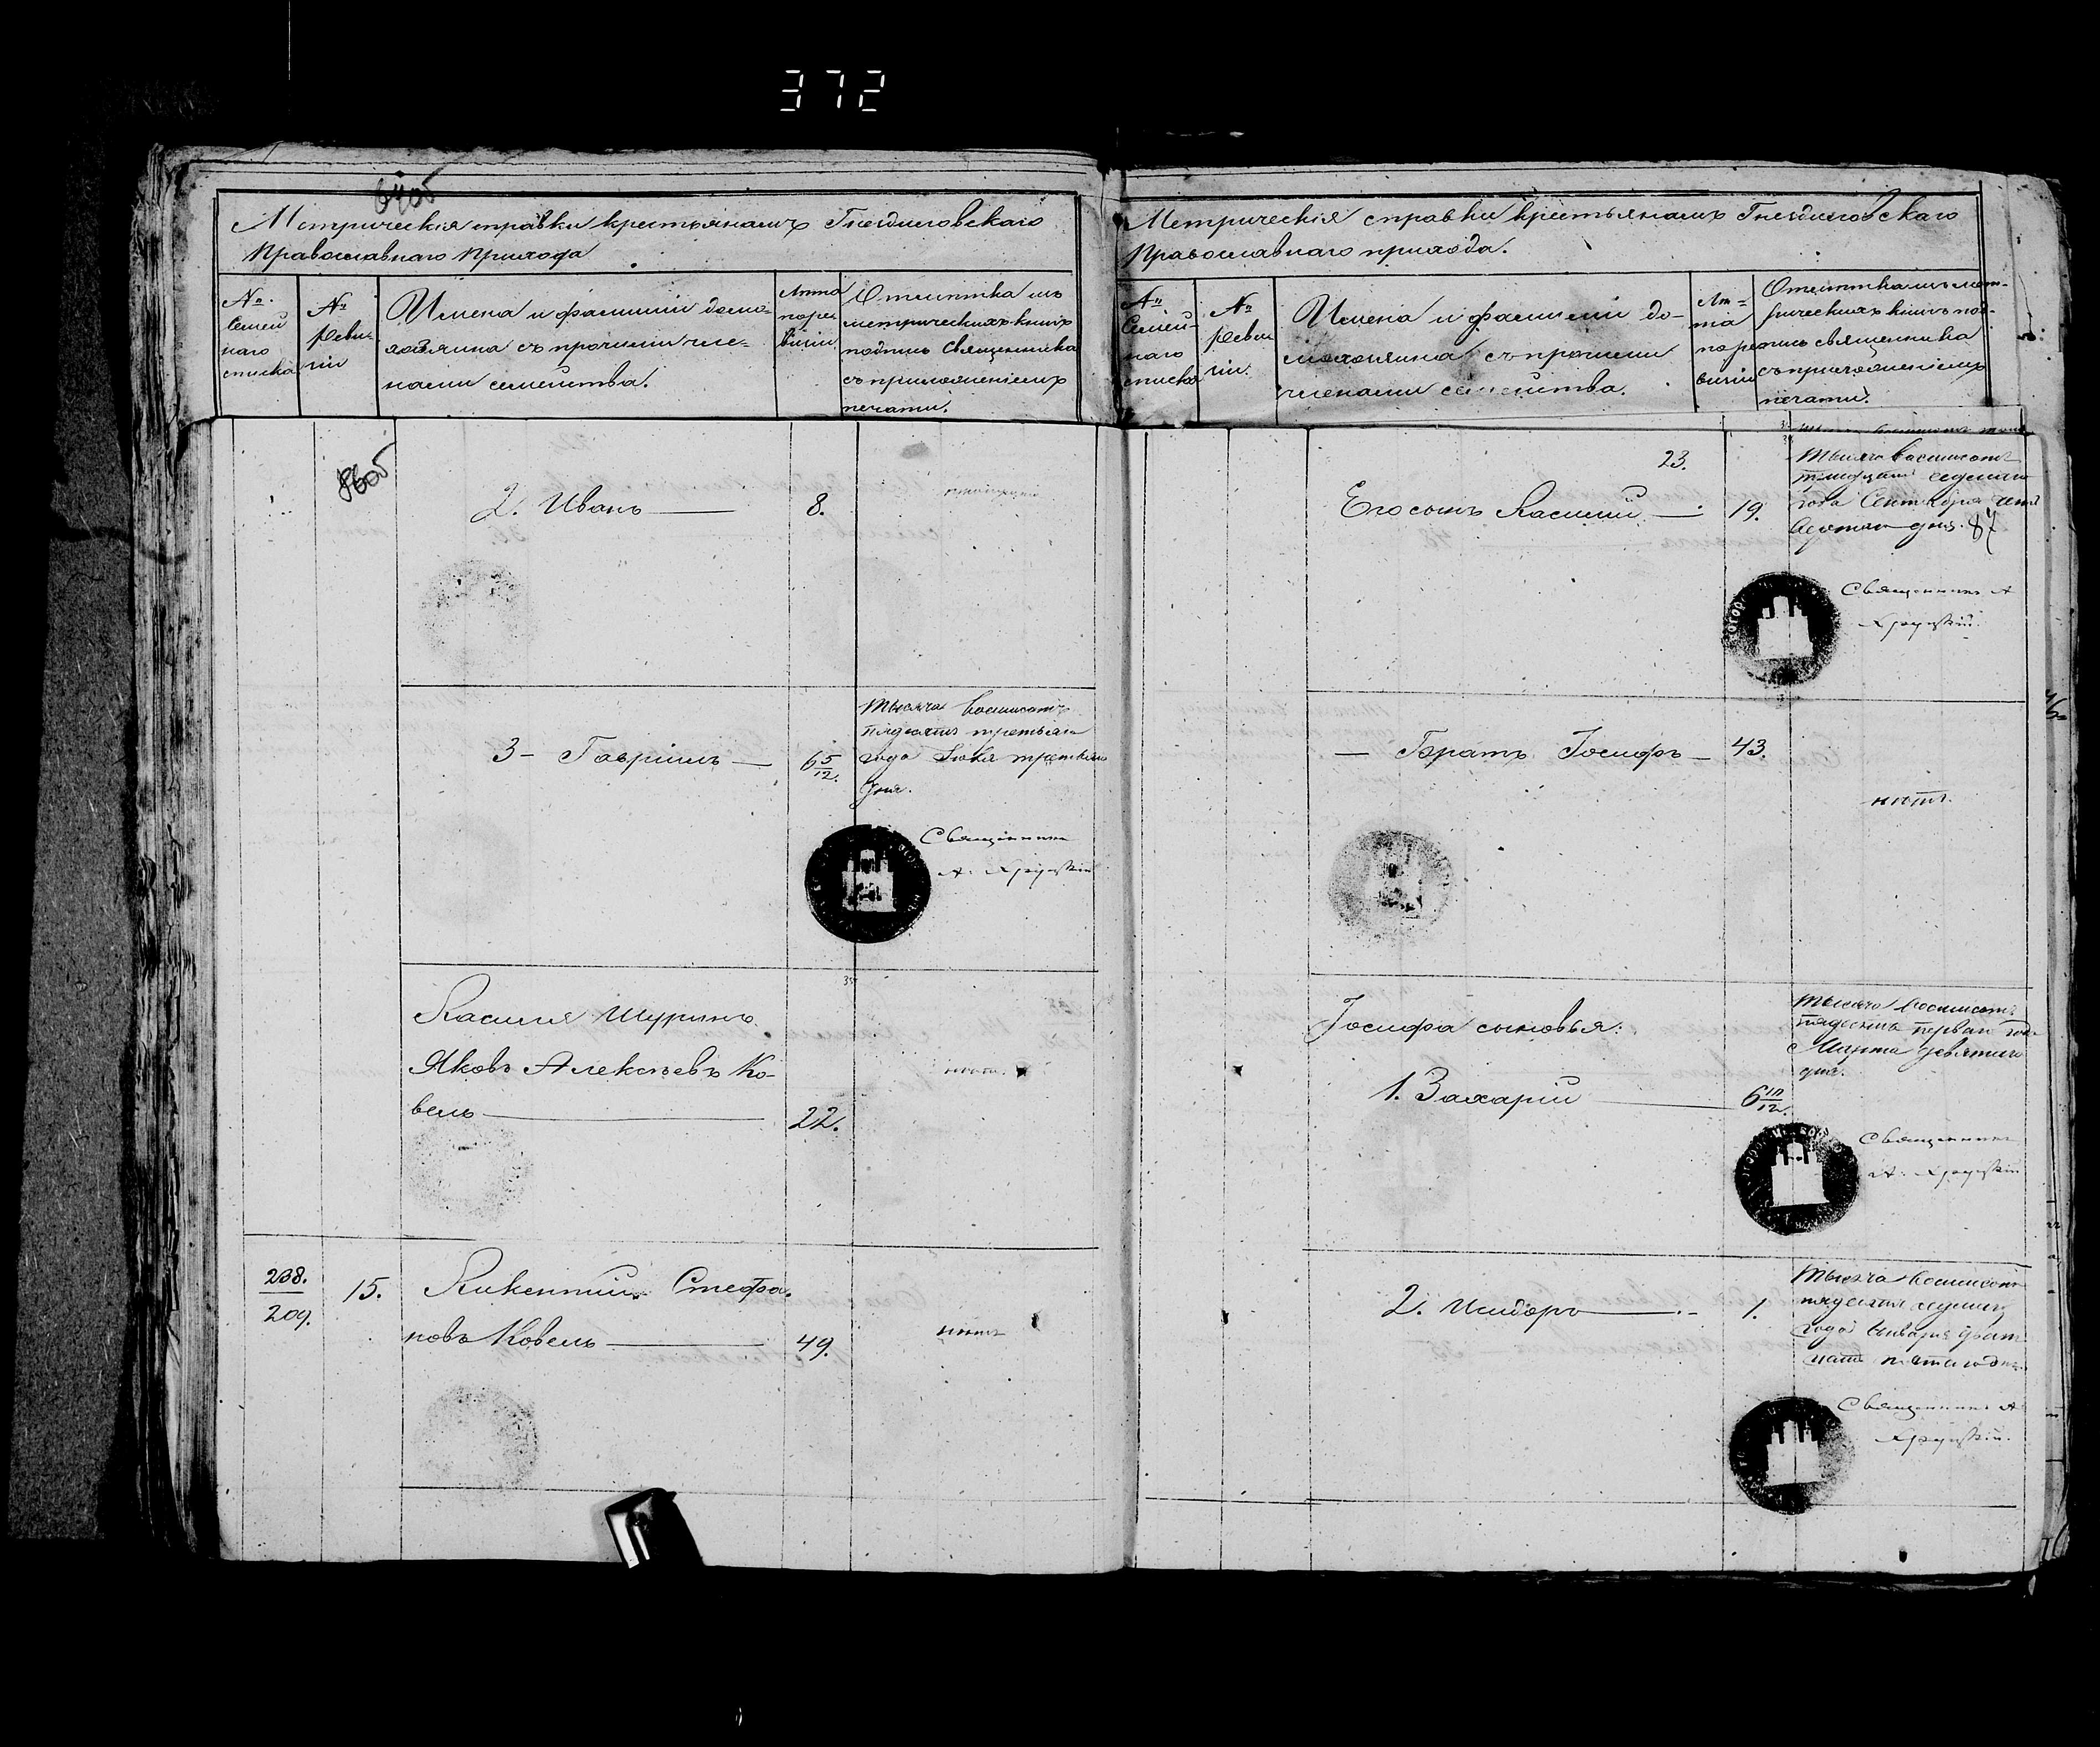 372
Метрическія справки крестьянамъ Гнездиловскаго
Православнаго Прихода
№ Семей
наго
списка
№
Реви-
зіи
Имена и фамиліи домо-
хозяина съ прочими чле-
нами семейства.
Лѣта
по ре
визіи
Отмѣтка изъ
метрическихъ книгъ
подпись Священника
съ приложеніемъ
печати.
86об
2. Иванъ
8.
3 - Гавріилъ
6 5/12.
Тысяча восемисотъ
пядесятъ третьяго
года Іюля третьяго
дня.
Священникъ
А.
Василія Шуринъ
Яковъ Алексѣевъ Ко-
вель
22.
нѣтъ.
238.
209.
15.
Викентій Стефа-
новъ Ковель
49.
нѣтъ
Метрическія справки крестьянамъ Гнездиловскаго
Православнаго прихода.
№
Семей-
наго
списка
№
Реви
зіи.
Имена и фамиліи до-
мохозяина съ прочими
членами семейства.
Лѣ-
та
по ре
визіи
Отмѣтка изъ мет-
рическихъ книгъ под-
пись священника
съ приложеніемъ
печати.
23.
Его сынъ Василій
19.
Тысяча восемисотъ
тридцать седьмого
года Сентября
дня. 87
Священникъ А
Братъ Іосифъ
43.
нѣтъ.
Іосифа сыновья:
1. Захарій
6 10/12.
Тысяча восемисотъ
пядесятъ перваго года
Марта девятаго
дня.
Священникъ
А.
2. Исидоръ
1.
Тысяча восемисотъ
пядесятъ седьмого
года Января двад
цать пятаго дня.
Священникъ А